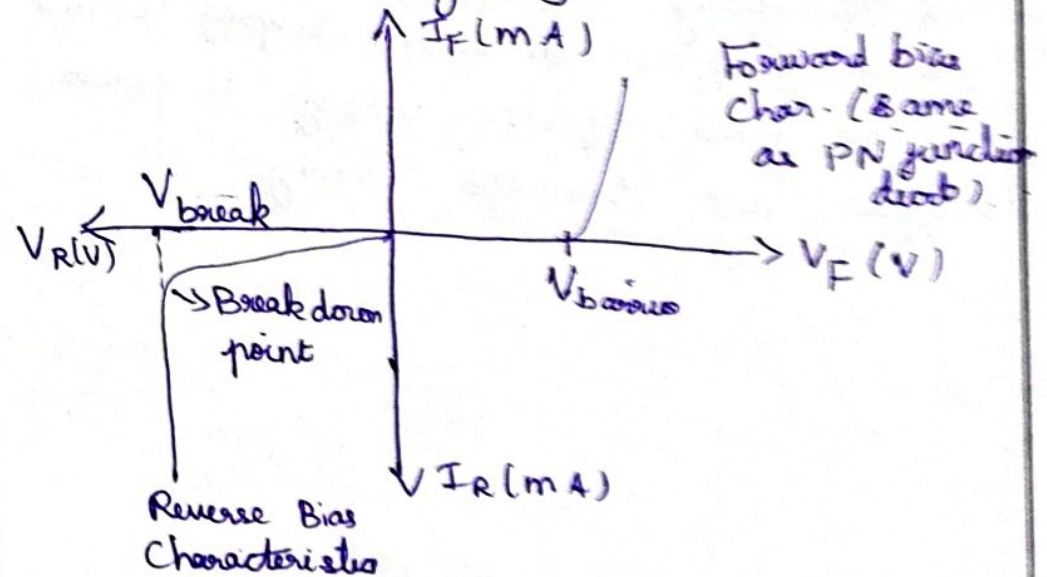 I_F (mA)
Forward bias
Char. (same
as PN junction
diode)
V_break
V_R(V)
V_F (V)
V_barrier
Breakdown
point
I_R (mA)
Reverse Bias
Characteristics